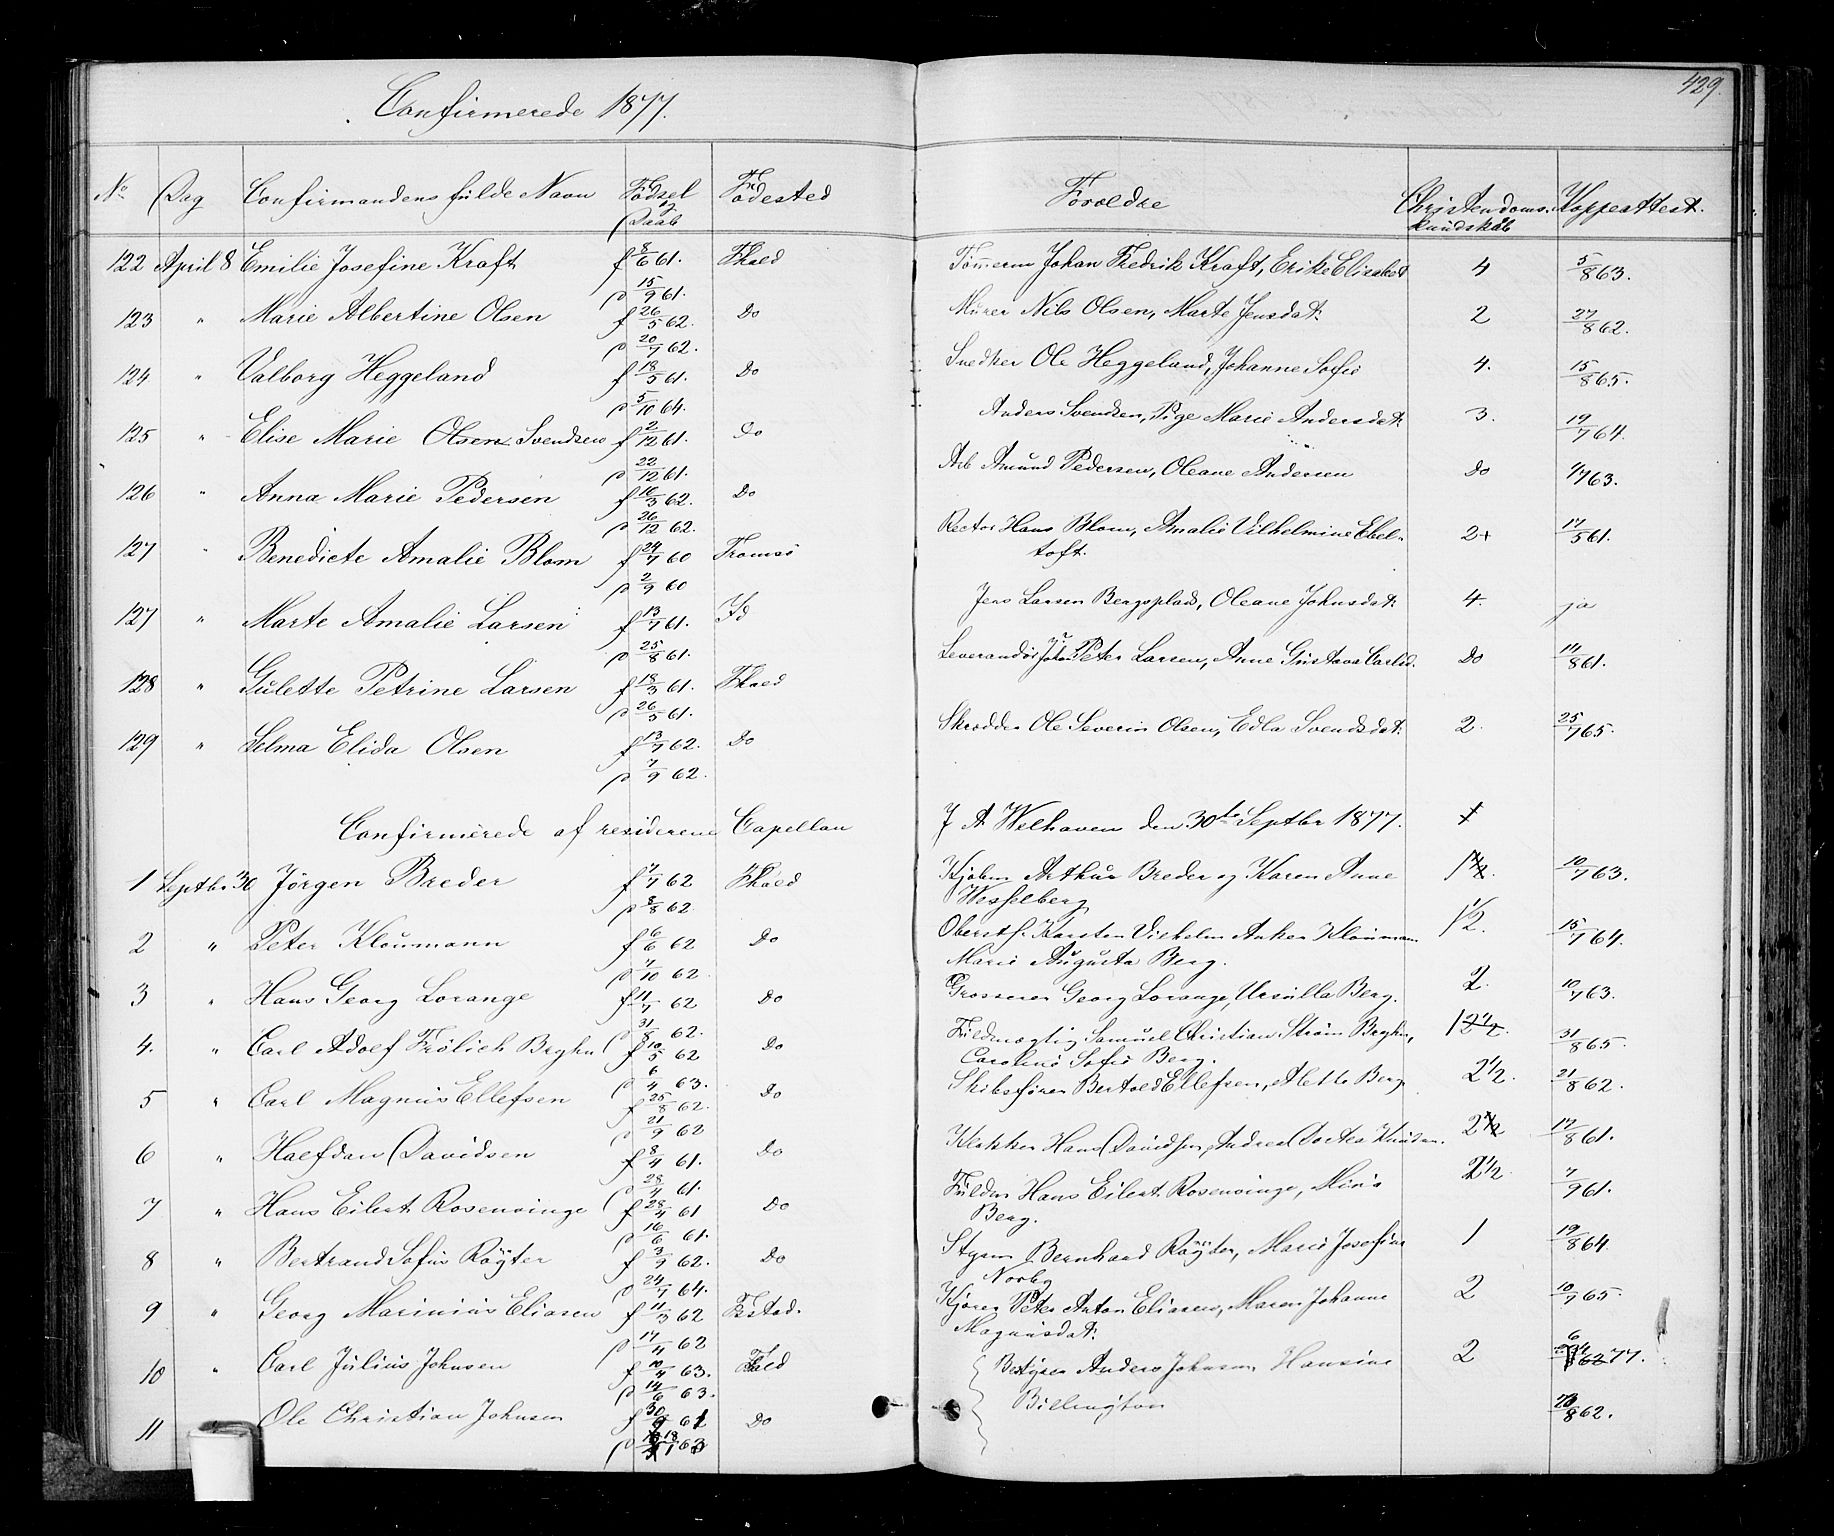 Confirmerede 1877.
429.
No Dag Confirmandens fulde Navn Fødsel og Daab Fødested Foroldre Christendoms kundskab Koppeattest.
122 April 8 Emilie Josefine Kraft f 8/6 61. Fhald Tømerm Johan Fredrik Kraft, Erike Elisabet 4 5/8 63.
p 15/9 61.
123 " Marie Albertine Olsen f 26/5 62. Do Murer Nils Olsen, Marte Jensdat: 2 27/8 62.
p 20/7 62.
124 " Valborg Heggeland f 18/5 61. Do Snedker Ole Heggeland, Johanne Sofie 4. 15/8 65.
p 5/10 64.
125 " Elise Marie Olsen Svendsen f 2/12 61. Do Anders Svendsen, Pige Marie Andersdat: 3. 19/7 64.
p 22/12 61.
126 " Anna Marie Pedersen f 16/3 62. Do Arb Amund Pedersen, Oleane Andersen Do 63.
p 26/12 62.
127 " Benedicte Amalie Blom f 24/7 60 Tromsø Rector Hans Blom, Amalie Vilhelmine Ebel-
toft. 2+ 17/5 61.
p 2/9 60
127 " Marte Amalie Larsen f 13/7 61. Id Jens Larsen Bergsplads, Oleane Johnsdat: 4. ja
p 25/8 61.
128 " Gulette Petrine Larsen f 18/3 61. Fhald Leverandør Johan Peter Larsen, Anne Gustava Carlsd. Do 14/8 61.
p 26/5 61.
129 " Selma Elida Olsen f 13/7 62. Do Skrædder Ole Severin Olsen, Edla Svendsdat: 2. 25/7 65.
p 7/9 62.
Confirmerede af residerene Capellan J A Welhaven den 30te Septbr 1877.
1 Septbr 30 Jørgen Breder f 7/7 62 Fhald Kjøbm Arthur Breder og Karen Anne 10/7 63.
p 8/8 62. Wesselberg
2 " Peter Kloumann f 6/6 62 Do Oberstl. Karsten Vilhelm Anker Kloumann 1 1/2. 15/7 64.
p 7/10 62. Marie Augusta Berg.
3 " Hans Georg Lorange f 11/7 62 Do Grosserer Georg Lorange, Ursulla Berg. 2. 10/7 63.
p 31/8 62.
4. " Carl Adolf Frølich Bryhn f 10/5 62 Do Fuldmægtig Samuel Christian Strøm Bryhn, 31/8 65.
p 6/4 63. Caroline Sofie Berg.
5 " Carl Magnus Ellefsen f 25/8 62. Do Skibsfører Bertold Ellefsen, Alette Berg 2 1/2. 21/8 62.
p 21/9 62
6 " Halfdan Davidsen f 8/4 61. Do Klokker Hans Davidsen, Andrea Dortea Knudsen. 17/8 61.
p 28/4 61.
7 " Hans Eilert Rosenvinge f 28/4 61 Do Fuldm Hans Eilert Rosenvinge, Mina 2 1/2 7/9 61.
p 16/6 61. Berg.
8 " Bertrand Sofus Røyter f 3/9 62. Do Styrm Bernhard Røyter, Marie Josefine 1 19/8 64.
p 24/7 64. Norby
9 " Georg Marinius Eliasen f 11/3 62 Fstad. Kjører Peter Anton Eliasen, Maren Johanne 2 10/7 65.
p 17/4 62 Magnusdat:
10 " Carl Julius Johnsen f 10/4 63. Fhald Bestyrer Anders Johnsen Hansine 2 77.
p 14/6 63. Billington
11 Ole Christian Johnsen f 30/9 61 Do 62.
p 63